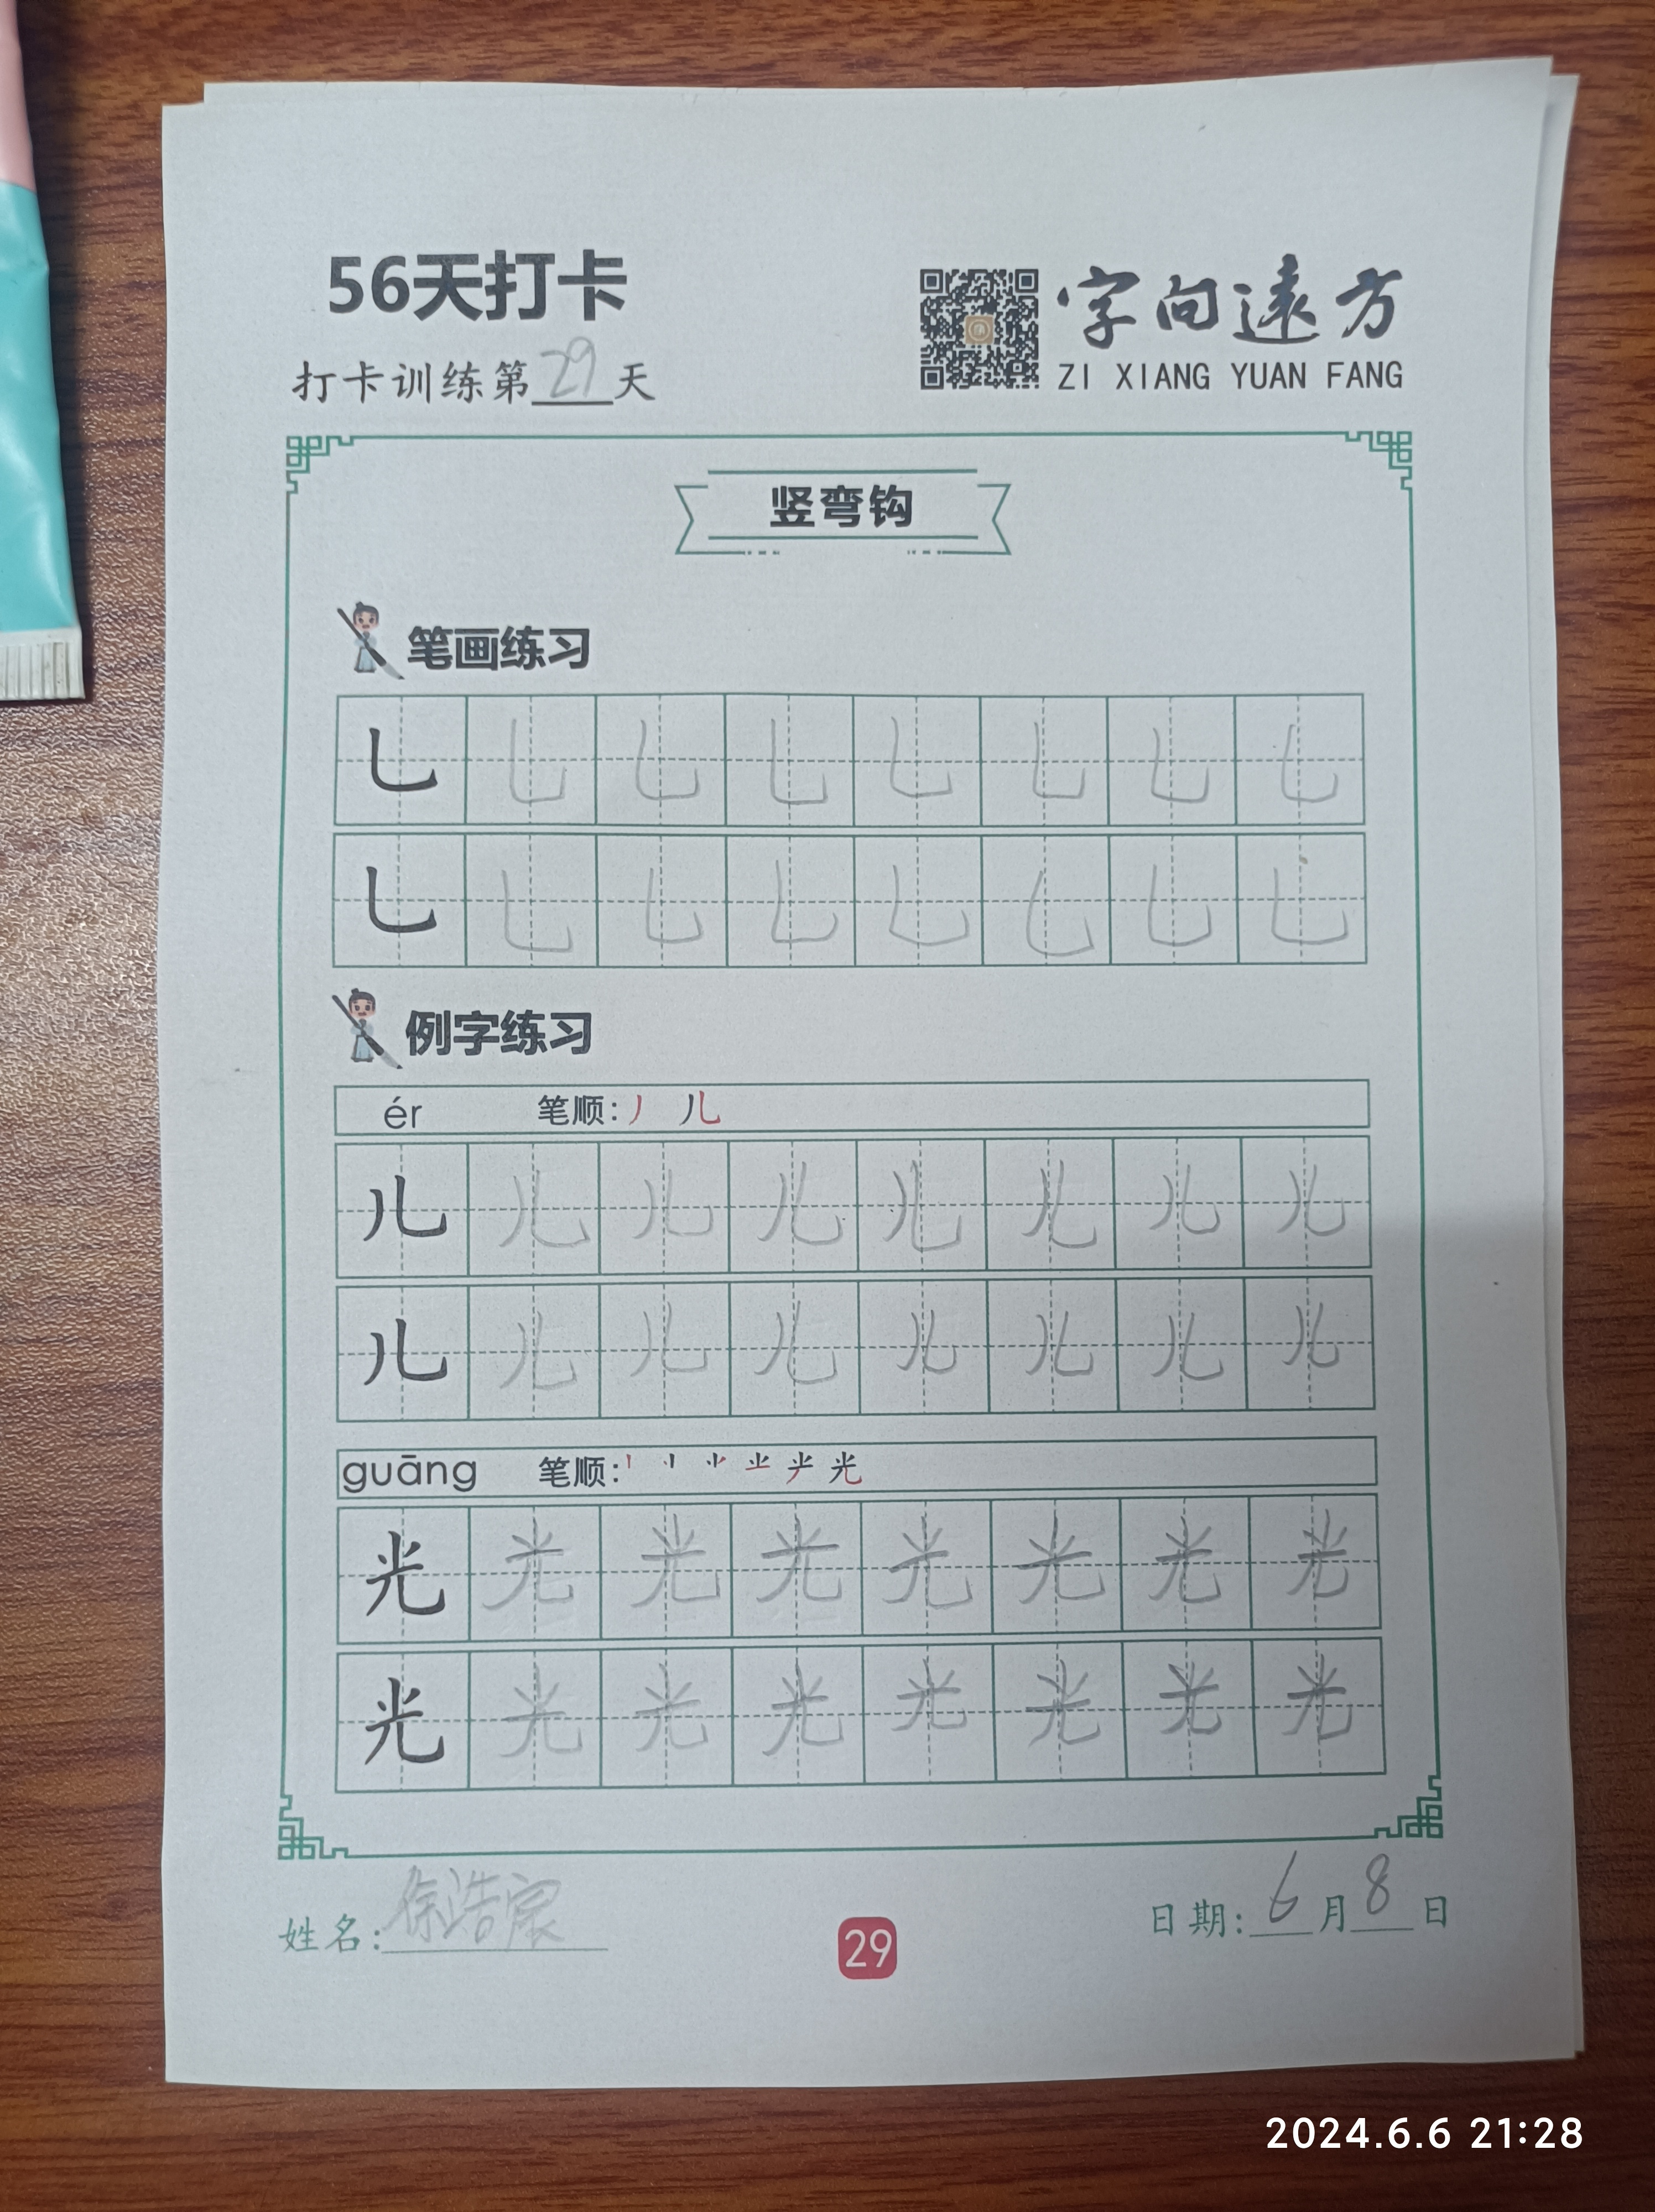 56天打卡
字向遠方
ZI XIANG YUAN FANG
打卡训练第29天
竖弯钩
笔画练习
乚 乚 乚 乚 乚 乚 乚 乚
乚 乚 乚 乚 乚 乚 乚 乚
例字练习
ér 笔顺:丿 儿
儿 儿 儿 儿 儿 儿 儿 儿
儿 儿 儿 儿 儿 儿 儿 儿
guāng 笔顺:
光 光 光 光 光 光 光 光
光 光 光 光 光 光 光 光
姓名:徐浩宸
29
日期:6月8日
2024.6.6 21:28